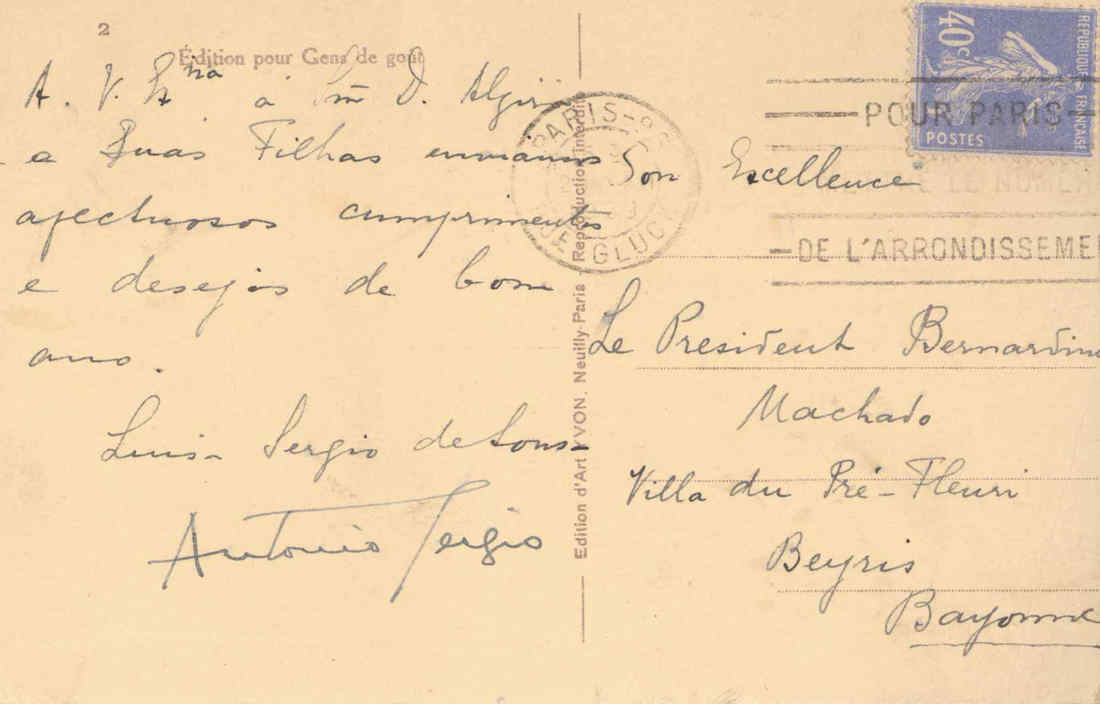 2
Édition pour Gens de goût
A. V. Ex.cia a Snra D. Elzira
e Suas Filhas enviamos
afectuosos cumprimentos
e desejos de bom
ano.
Luisa Sergio de Sousa
Antonio Sergio
Edition d'Art YVON. Neuilly-Paris - Reproduction interdite
PARIS-25
RUE GLUCK
40c
REPUBLIQUE FRANÇAISE
POSTES
POUR PARIS
LE NUMÉR
DE L'ARRONDISSEME
Son Excellence
Le President Bernardino
Machado
Villa du Pré-Fleuri
Beyris
Bayonne